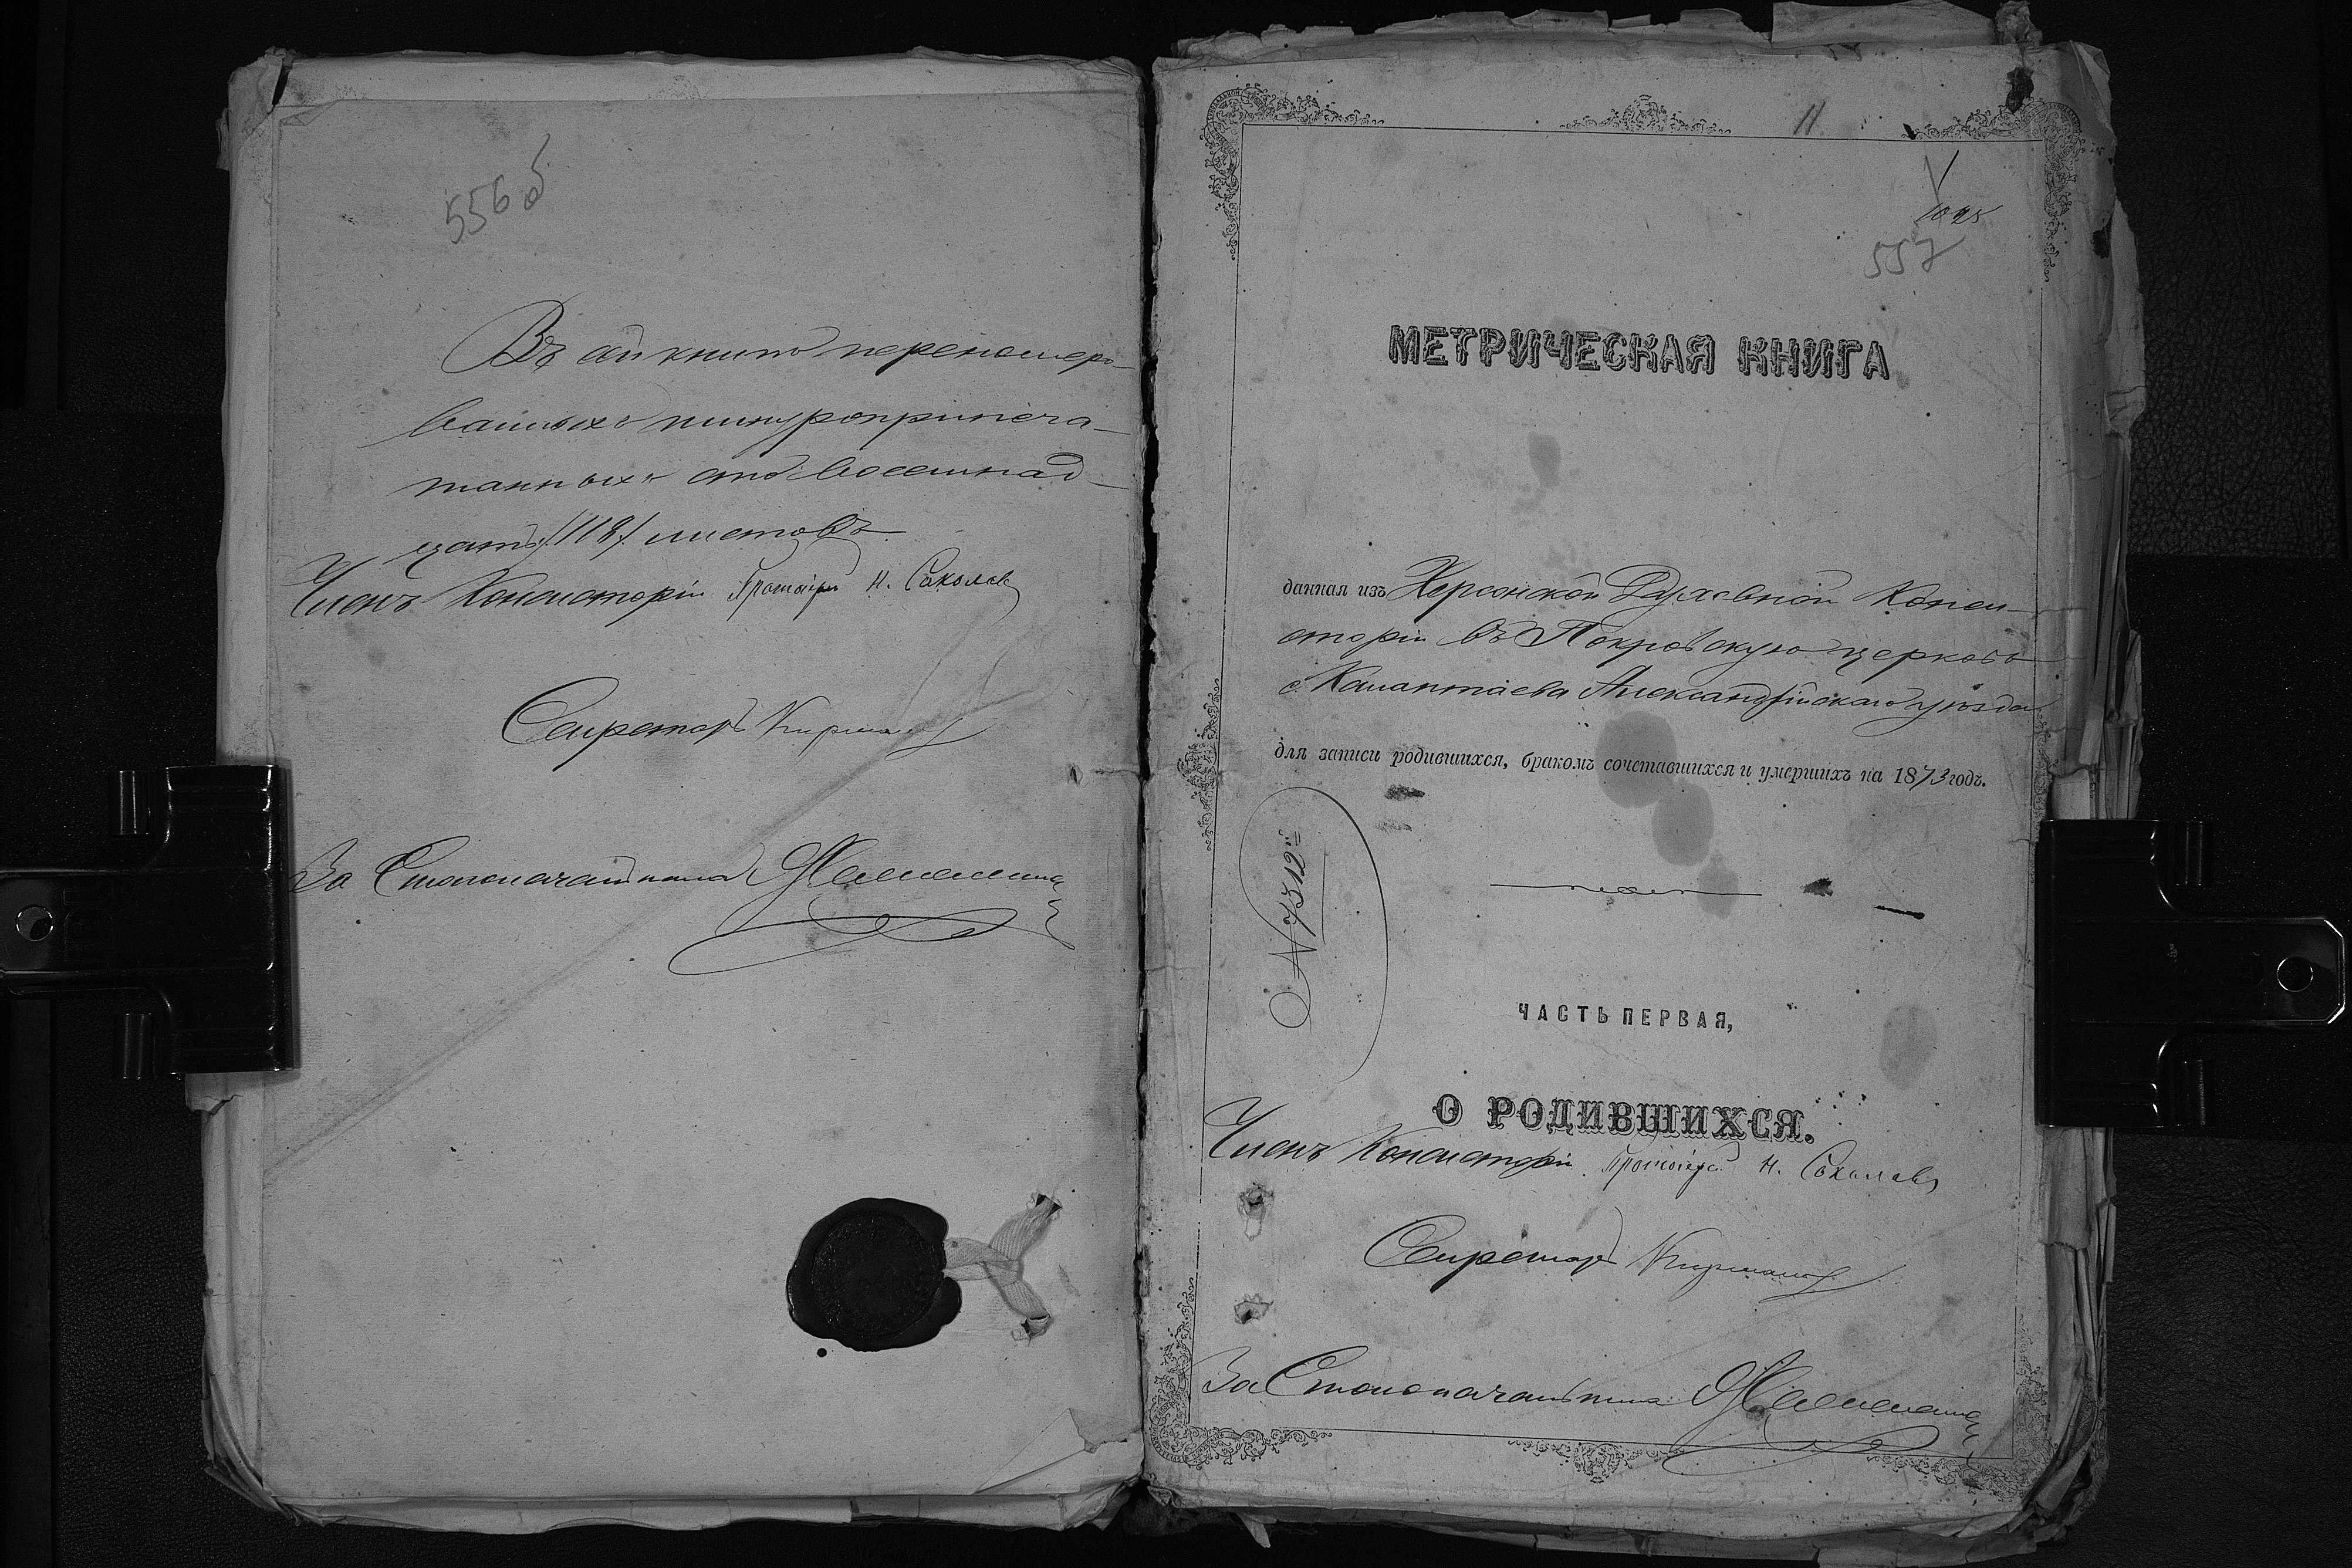 556 об
Въ сей книгѣ перенумеро-
ванныхъ шнуроприпеча-
танныхъ сто восемнад-
цать /118/ листовъ
Членъ Консисторіи Протоіерей Н. Соколовъ
Секретарь
За Столоначальника
11
557
МЕТРИЧЕСКАЯ КНИГА
данная изъ Херсонской Духовной Конси-
сторіи въ Покровскую церковь
с. Калантаева Александрійскаго уѣзда
для записи родившихся, бракомъ сочетавшихся и умершихъ на 1873 годъ.
№ 7312
ЧАСТЬ ПЕРВАЯ,
О РОДИВШИХСЯ.
Членъ Консисторіи Протоіерей Н. Соколовъ
Секретарь
За Столоначальника